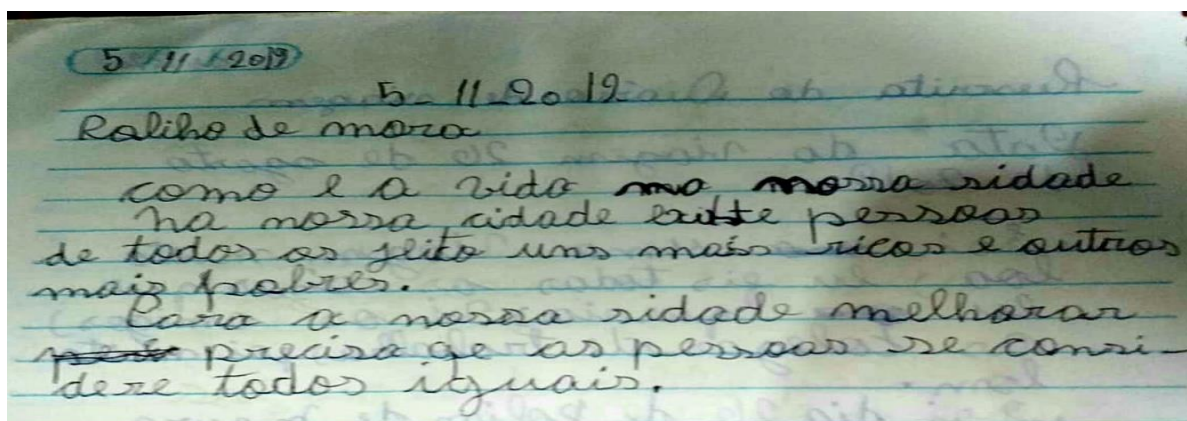 5/11/2019
5-11-2019
Raliho de mora
como e a vida na nossa sidade
na nossa cidade exitte pessoas
de todos os jeito uns mais ricos e outros
mais pobres.
Para a nossa sidade melhorar
precisa qe as pessoas se consi-
dere todos iguais.